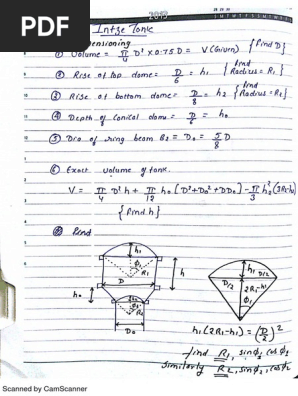 PDF
2013
Intze Tank
Dimensioning
① Volume = π/4 D² × 0.75D = V (Given) {find D}
② Rise of top dome = D/6 = h₁ {find Radius = R₁}
③ Rise of bottom dome = D/8 = h₂ {find Radius = R₂}
④ Depth of conical dome = D/6 = h₀
⑤ Dia of ring beam B₂ = D₀ = 5/8 D
⑥ Exact volume of tank.
V = π/4 D²h + π/12 h₀ (D² + D₀² + DD₀) - π/3 h₂² (3R₂-h₂)
{find h}
Find
h₁
φ₁
R₁
D
h
h₀
φ₂
R₂
D₀
h₁
D/2
D/2
2R₁-h₁
φ₁
h₁(2R₁-h₁) = (D/2)²
find R₁, sinφ₁ cosφ₁
similarly R₂, sinφ₂, cosφ₂
Scanned by CamScanner